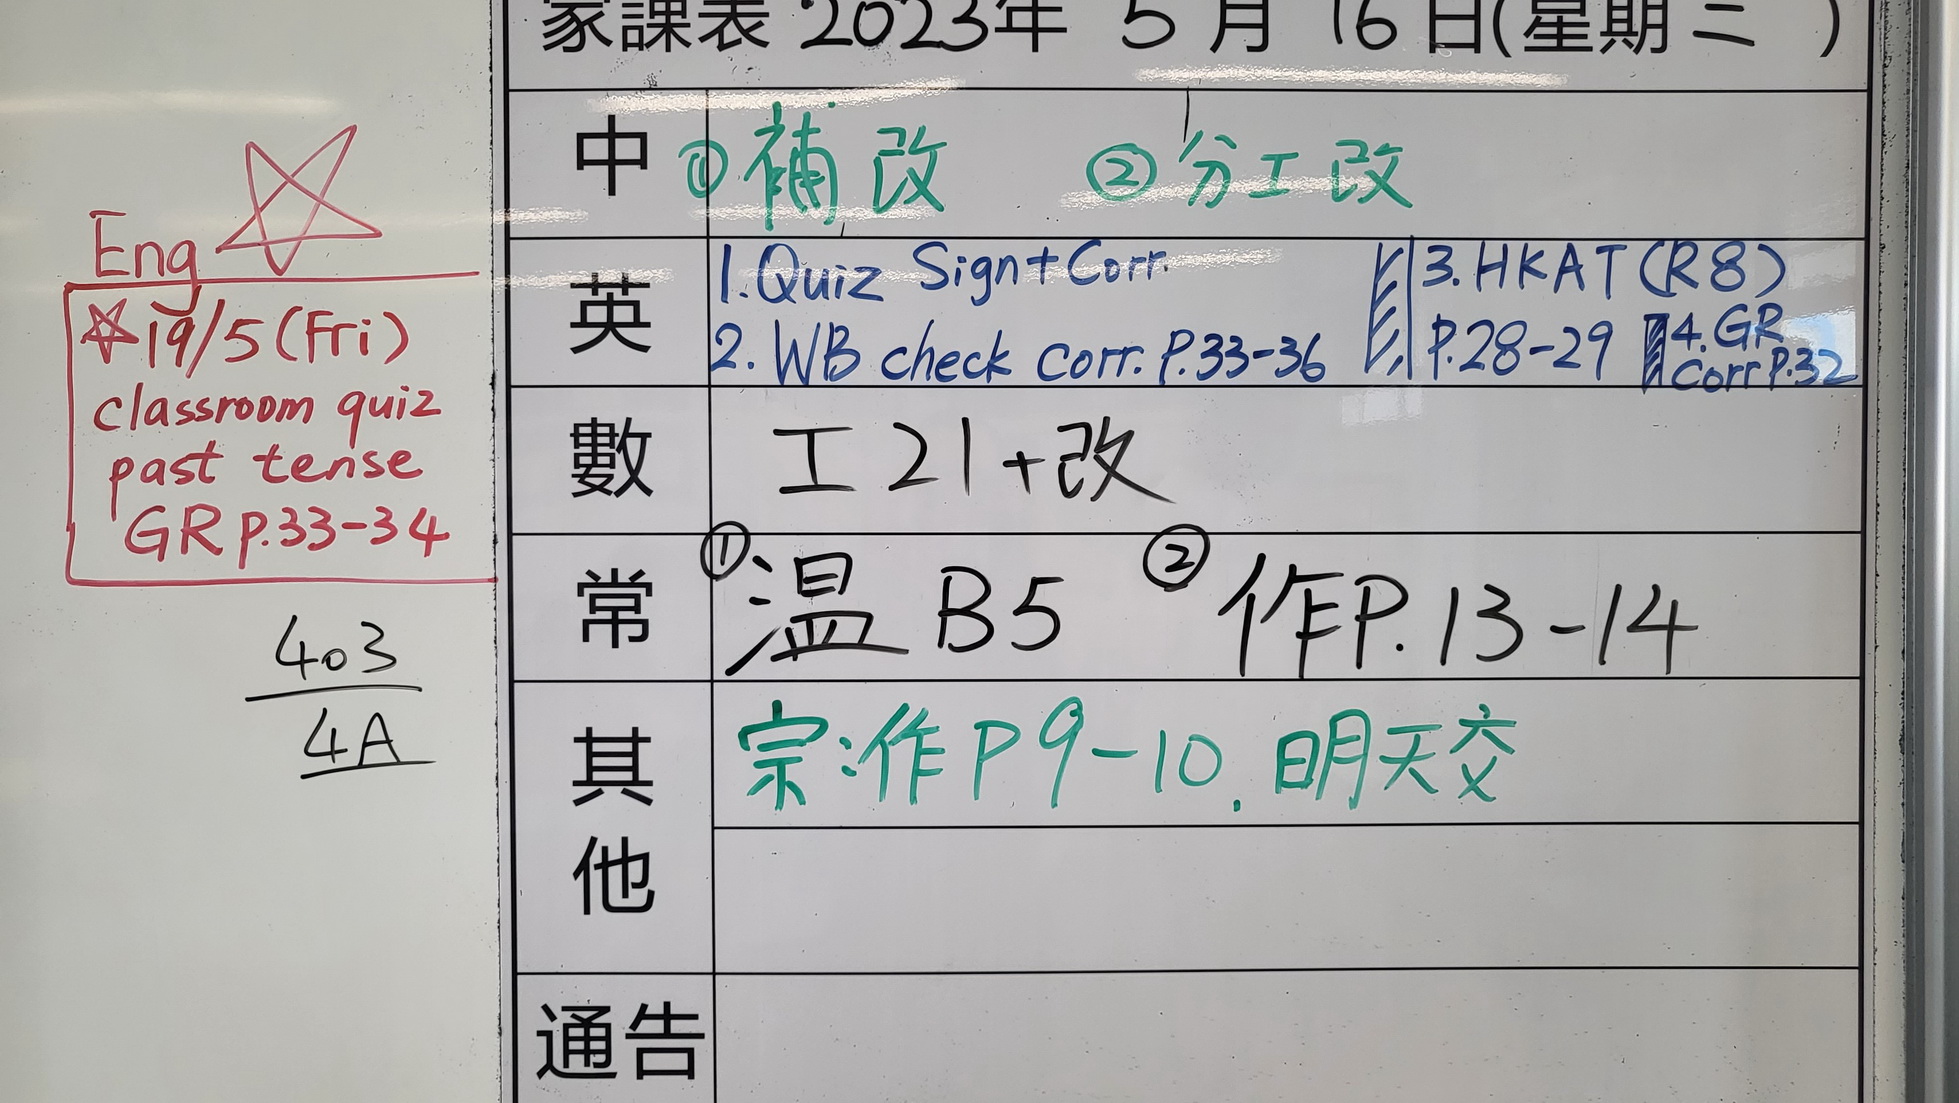 家課表 2023年 5月 16日(星期二)
中 ①補改 ②分工改
英 1.Quiz Sign+Corr. 3.HKAT(R8)
2. WB check corr. P.33-36 P.28-29 4.GR
corr P.32
數 工21+改
常 ①温B5 ②作P.13-14
其他 宗:作P9-10. 明天交
通告
Eng
☆19/5(Fri)
classroom quiz
past tense
GR p.33-34
403
4A